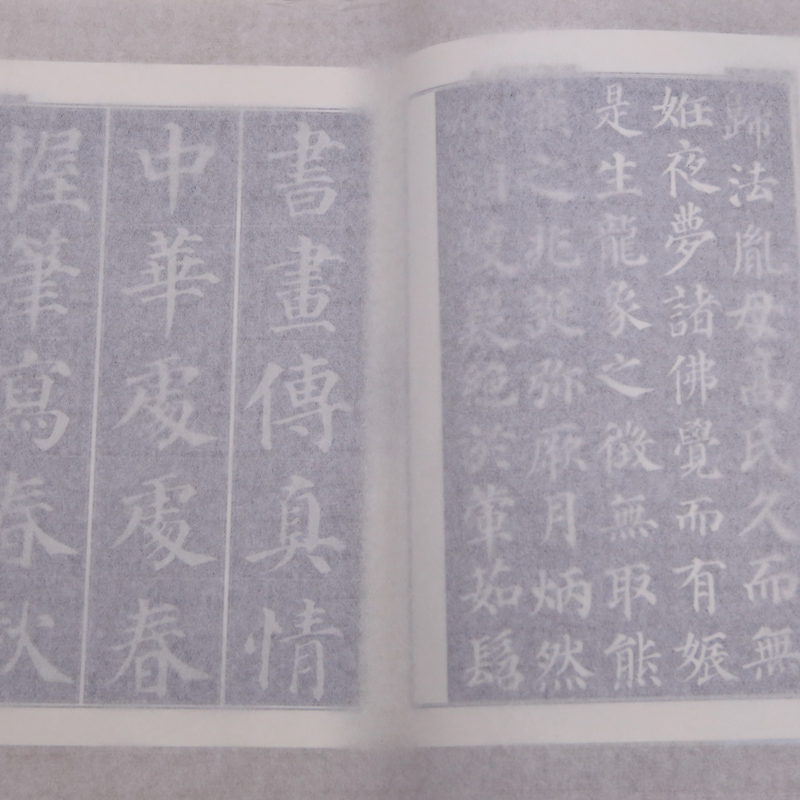 歸法胤母高氏久而無
姙夜夢諸佛覺而有娠
是生龍象之徵無取熊
之兆誕弥厥月炳然
相岐嶷絕於葷茹髫
書畫傳真情
中華處處春
握筆寫春秋